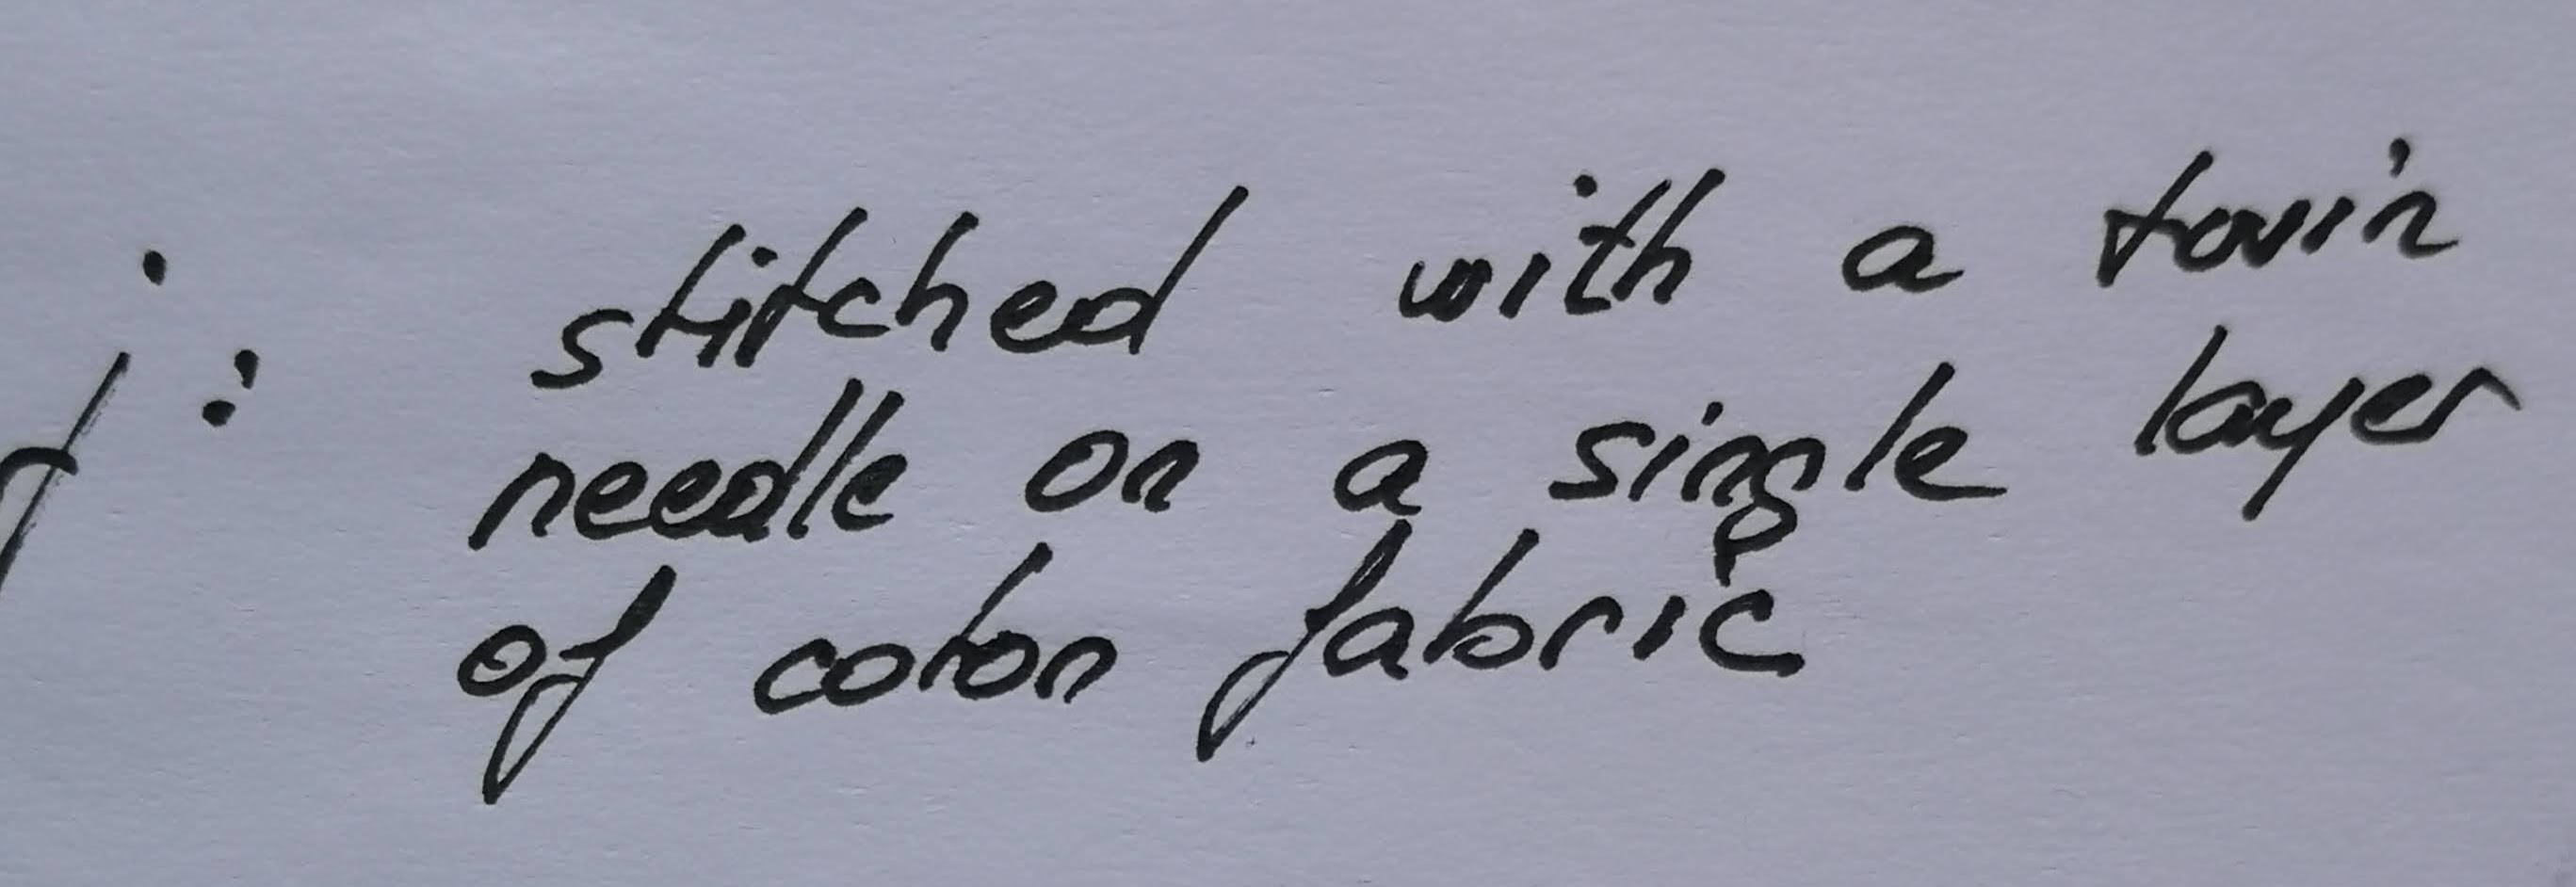 j: stitched with a twin
needle on a single layer
of coton fabric